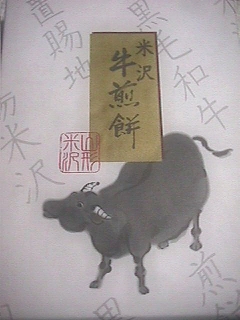 米沢
牛煎餅
山形
米沢
黒毛和牛
置賜地
易
米沢
煎
黒